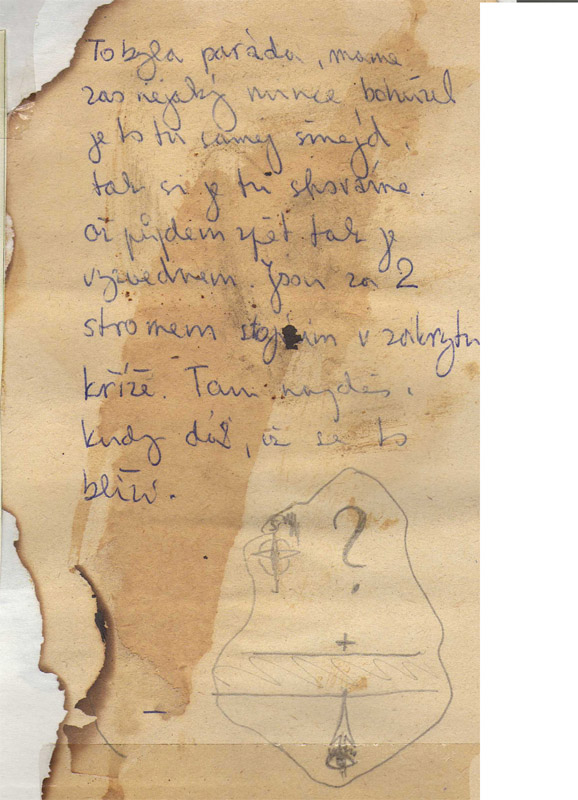 To byla paráda, máme
zas nějaký mince bohužel
je to tu samej šmejd,
tak si je tu schováme.
až půjdem zpět tak je
vyzvednem. Jsou za 2
stromem stojícím v zákrytu
kříže. Tam najdeš,
kudy dál, už se to
blíží.
?